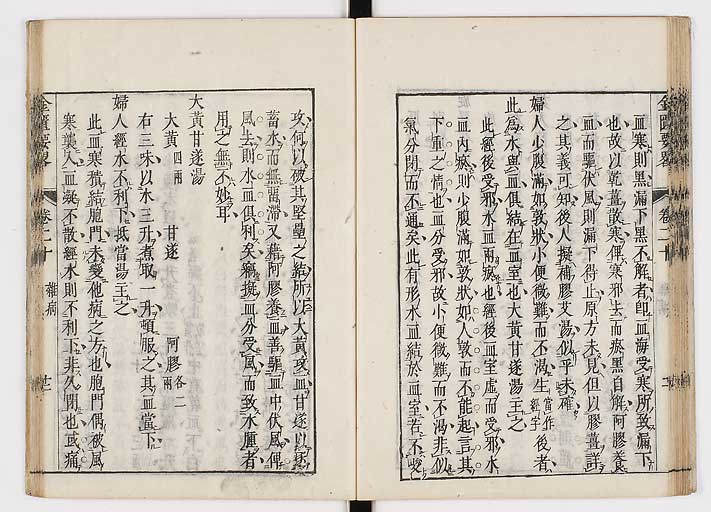 血寒則黑漏下黑不解者卽血海受寒所致漏下
也故以乾薑散寒俾寒邪去而瘀黑自解阿膠養
血而驅伏風則漏下得止原方未見但以膠薑詳
之其義可知後人擬補膠艾湯似乎未確
婦人少腹滿如敦狀小便微難而不渴生當作經字後者
此爲水與血俱結在血室也大黃甘遂湯主之
此經後受邪水血兩瘀也經後血室虛而受邪水
血內瘀則少腹滿如敦狀如人敦而不能起言其
下重之情也血分受邪故小便微難而不渴非似
氣分閉而不通矣此有形水血結於血室若不峻
攻何以破其堅壘之結所以大黃攻血甘遂以逐
蓄水而無留滯又藉阿膠養血善驅血中伏風俾
風去則水血俱利矣竊擬血分受風而致水腫者
用之無不妙耳
大黃甘遂湯
大黃四兩 甘遂 阿膠各二兩
右三味以水三升煮取一升頓服之其血當下
婦人經水不利下抵當湯主之
此血寒積結胞門未變他病之方也胞門偶被風
寒襲入血凝不散經水則不利下非久閉也或痛
金匱要略 卷二十 雜病